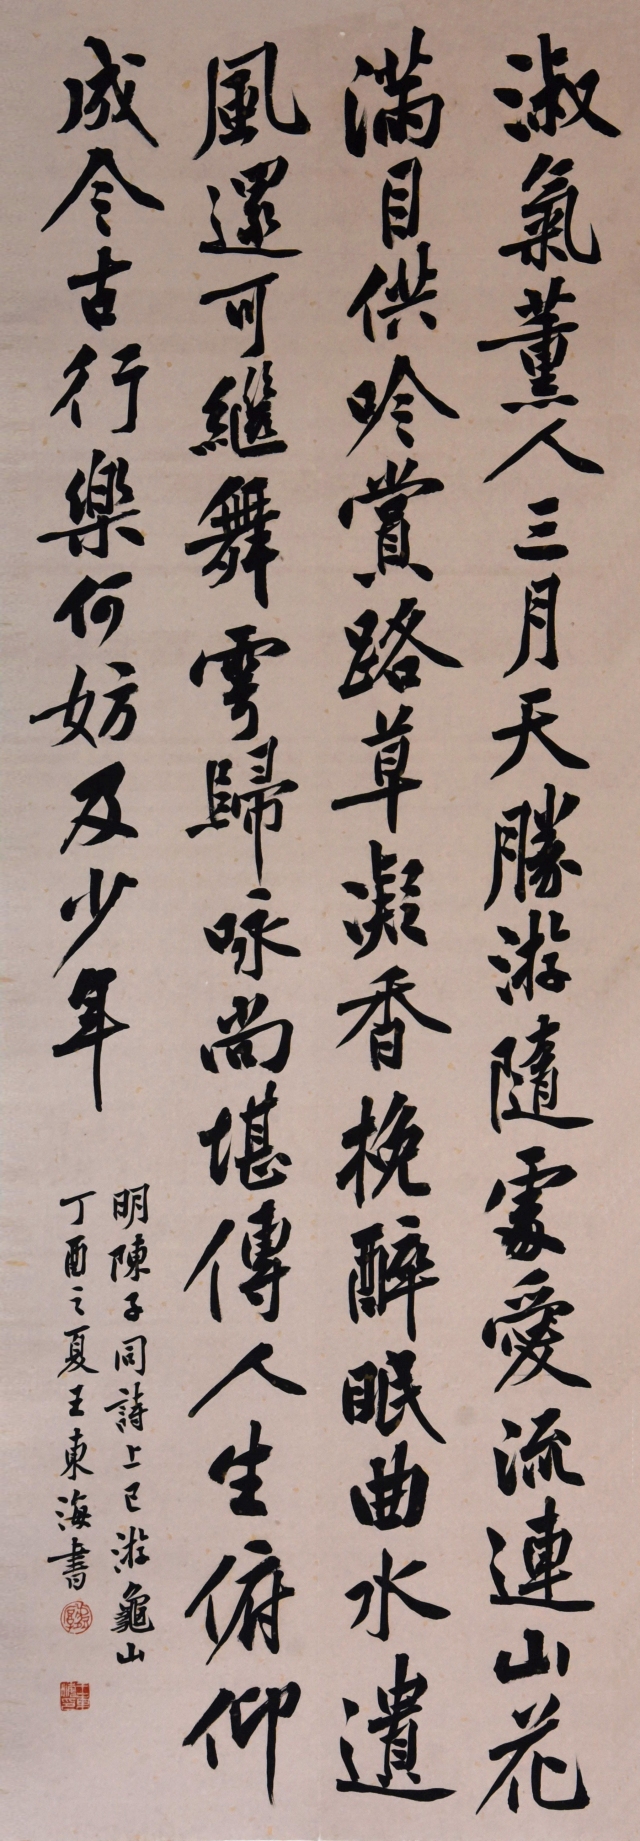 淑氣薰人三月天勝游隨處愛流連山花
滿目供吟賞路草凝香挽醉眠曲水遺
風還可繼舞雩歸咏尚堪傳人生俯仰
成今古行樂何妨及少年
明陳子同詩上巳游龜山
丁酉之夏王東海書